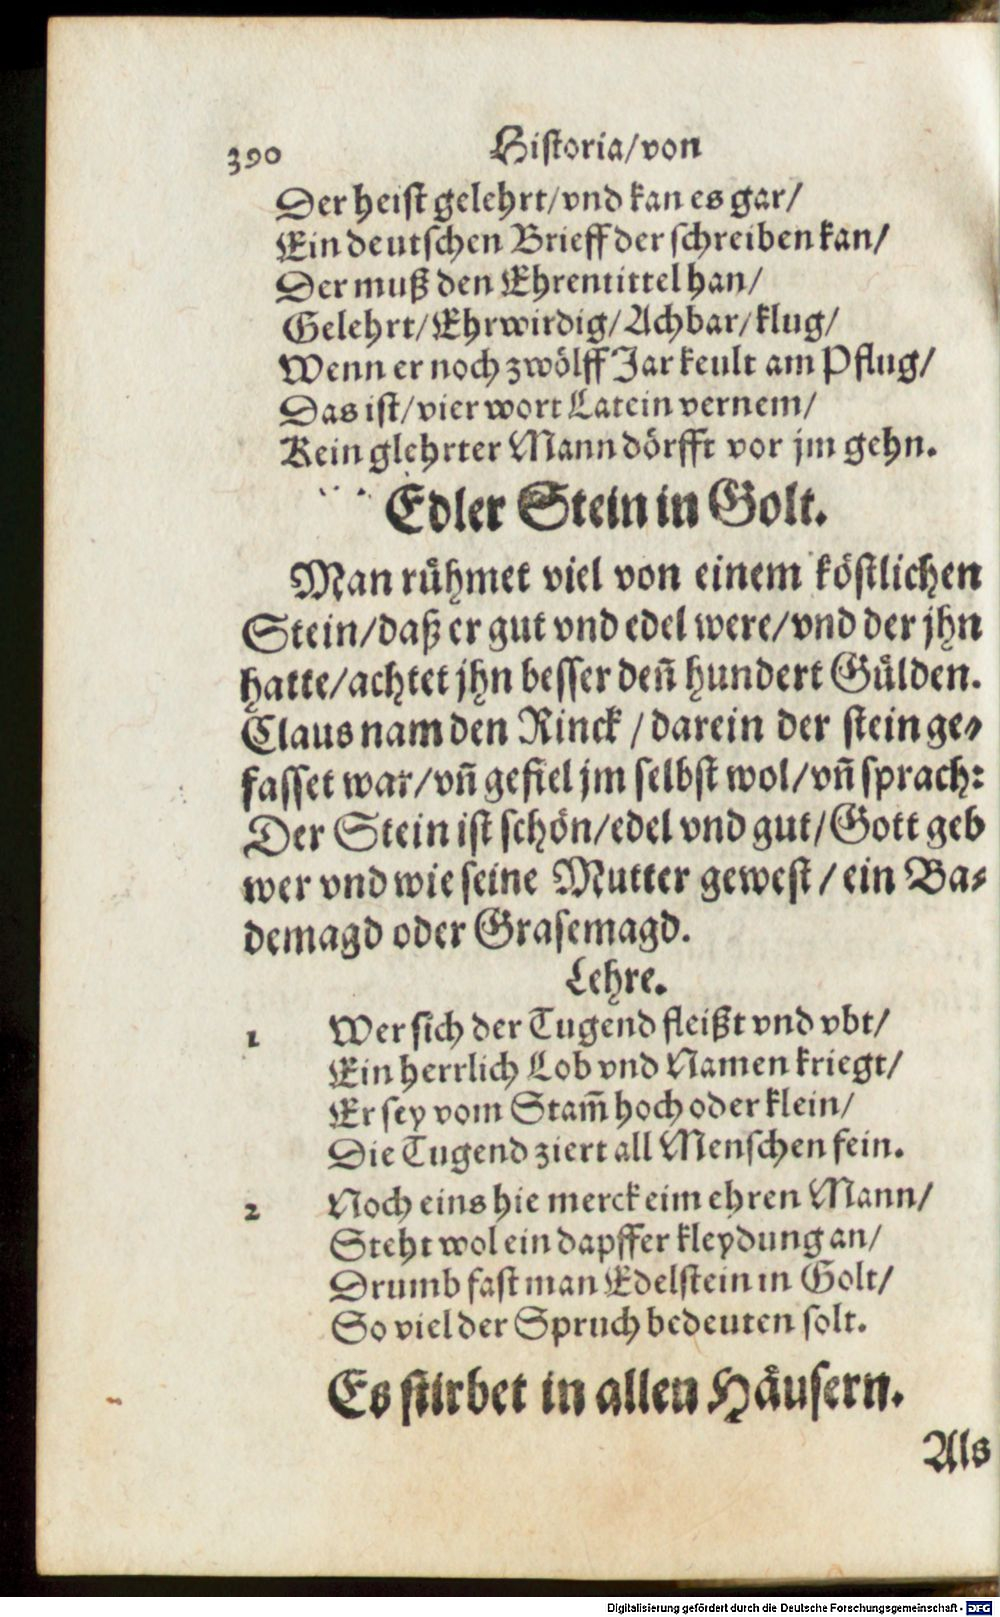 390 Historia/von
Der heist gelehrt/vnd kan es gar/
Ein deutschen Brieff der schreiben kan/
Der muß den Ehrentittel han/
Gelehrt/Ehrwirdig/Achbar/klug/
Wenn er noch zwölff Jar keult am Pflug/
Das ist/vier wort Latein vernem/
Kein glehrter Mann dörfft vor jm gehn.
Edler Stein in Golt.
Man rühmet viel von einem köstlichen
Stein/daß er gut vnd edel were/vnd der jhn
hatte/achtet jhn besser den̄ hundert Gülden.
Claus nam den Rinck / darein der stein ge-
fasset war/vn̄ gefiel jm selbst wol/vn̄ sprach:
Der Stein ist schön/edel vnd gut/Gott geb
wer vnd wie seine Mutter gewest / ein Ba-
demagd oder Grasemagd.
Lehre.
1 Wer sich der Tugend fleißt vnd vbt/
Ein herrlich Lob vnd Namen kriegt/
Er sey vom Stam̄ hoch oder klein/
Die Tugend ziert all Menschen fein.
2 Noch eins hie merck eim ehren Mann/
Steht wol ein dapffer kleydung an/
Drumb fast man Edelstein in Golt/
So viel der Spruch bedeuten solt.
Es stirbet in allen Häusern.
Als
Digitalisierung gefördert durch die Deutsche Forschungsgemeinschaft - DFG